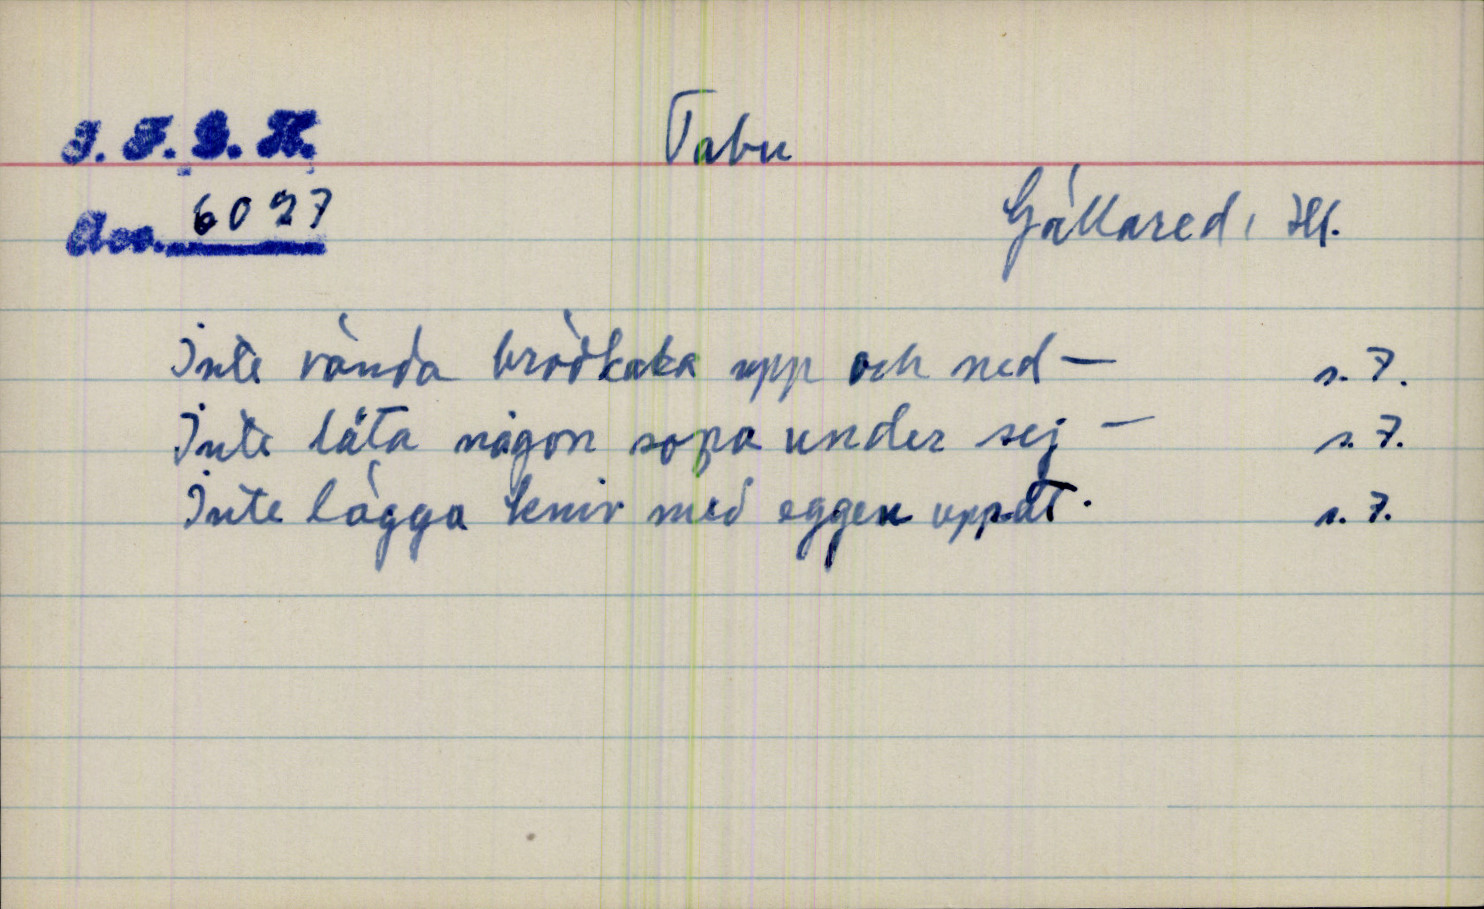 I. F. G. H.
Tabu
Acc. 6027
Gällared, Hl.
Inte vända brödkaka upp och ned — s. 7.
Inte låta någon sopa under sej — s. 7.
Inte lägga kniv med eggen uppåt. s. 7.